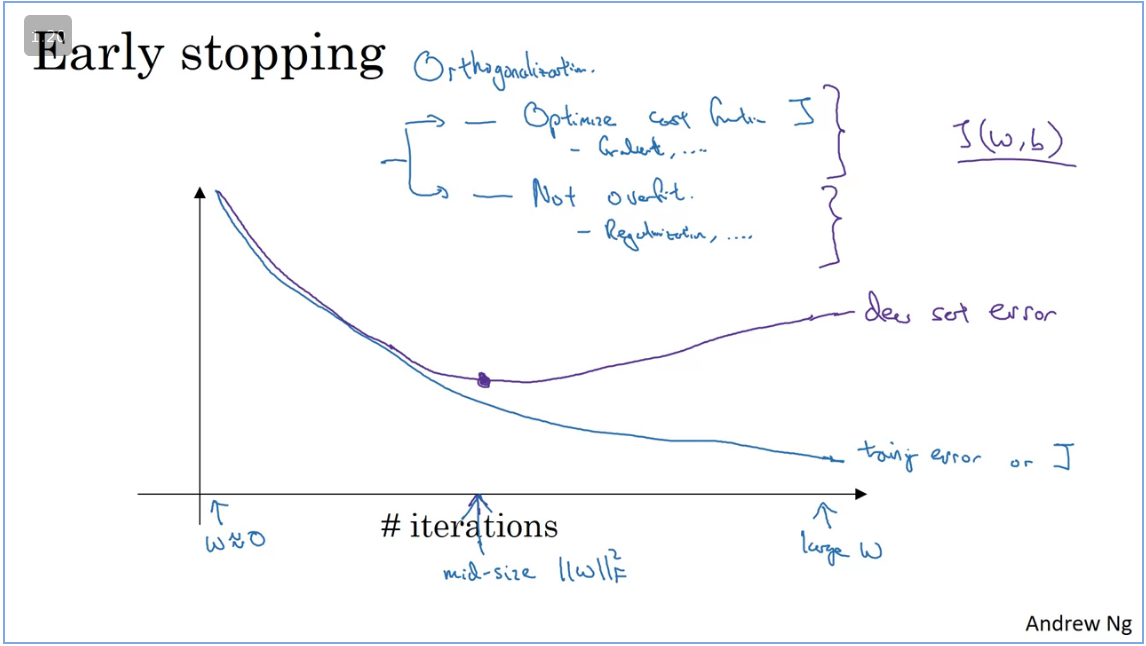 1.20
Early stopping
Orthogonalization.
— Optimize cost function J
- Gradient, ....
J(w,b)
— Not overfit.
- Regularization, ....
dev set error
training error or J
# iterations
w≈0
large w
mid-size ||w||²_F
Andrew Ng